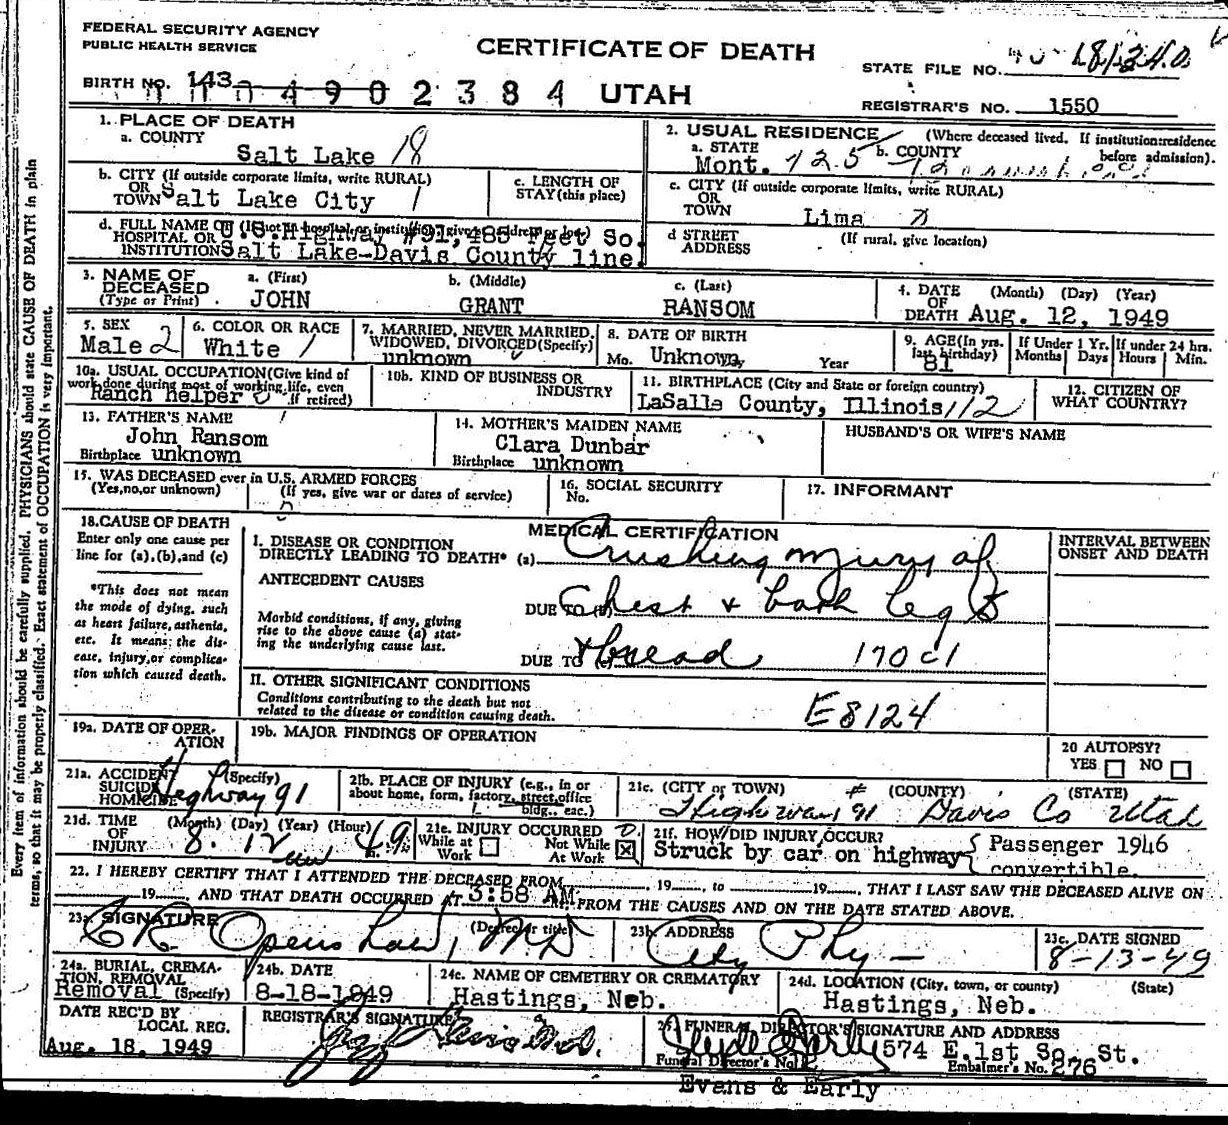 FEDERAL SECURITY AGENCY
PUBLIC HEALTH SERVICE
CERTIFICATE OF DEATH
STATE FILE NO.
BIRTH NO. 143
04902384 UTAH
REGISTRAR'S NO. 1550
1. PLACE OF DEATH
a. COUNTY
Salt Lake 18
2. USUAL RESIDENCE (Where deceased lived. If institution:residence before admission).
a. STATE b. COUNTY
Mont. 725
b. CITY (If outside corporate limits, write RURAL)
OR
TOWN Salt Lake City 1
c. LENGTH OF
STAY (this place)
c. CITY (If outside corporate limits, write RURAL)
OR
TOWN
Lima
d. FULL NAME OF (If not in hospital or institution, give address or loc.)
HOSPITAL OR U.S.Highway #91,485 Feet So.
INSTITUTION Salt Lake-Davis County line.
d STREET (If rural, give location)
ADDRESS
3. NAME OF DECEASED (Type or Print)
a. (First) b. (Middle) c. (Last)
JOHN GRANT RANSOM
4. DATE (Month) (Day) (Year)
OF
DEATH Aug. 12, 1949
5. SEX
Male 2
6. COLOR OR RACE
White 1
7. MARRIED, NEVER MARRIED,
WIDOWED, DIVORCED(Specify)
unknown
8. DATE OF BIRTH
Mo. Unknown Day Year
9. AGE(In yrs. last birthday)
81
If Under 1 Yr. Months Days
If under 24 hrs. Hours Min.
10a. USUAL OCCUPATION(Give kind of
work done during most of working life, even
Ranch helper if retired)
10b. KIND OF BUSINESS OR
INDUSTRY
11. BIRTHPLACE (City and State or foreign country)
LaSalle County, Illinois 112
12. CITIZEN OF
WHAT COUNTRY?
13. FATHER'S NAME
John Ransom
Birthplace unknown
14. MOTHER'S MAIDEN NAME
Clara Dunbar
Birthplace unknown
HUSBAND'S OR WIFE'S NAME
15. WAS DECEASED ever in U.S. ARMED FORCES
(Yes,no,or unknown) (If yes, give war or dates of service)
16. SOCIAL SECURITY
No.
17. INFORMANT
18.CAUSE OF DEATH
Enter only one cause per
line for (a),(b),and (c)
*This does not mean
the mode of dying, such
as heart failure, asthenia,
etc. It means the dis-
ease, injury, or complica-
tion which caused death.
MEDICAL CERTIFICATION
I. DISEASE OR CONDITION
DIRECTLY LEADING TO DEATH* (a) Crushing injury of
ANTECEDENT CAUSES
DUE TO Chest & both legs
Morbid conditions, if any, giving
rise to the above cause (a) stat-
ing the underlying cause last.
DUE TO & head 170 c1
INTERVAL BETWEEN
ONSET AND DEATH
II. OTHER SIGNIFICANT CONDITIONS
Conditions contributing to the death but not
related to the disease or condition causing death.
E8124
19a. DATE OF OPER-
ATION
19b. MAJOR FINDINGS OF OPERATION
20 AUTOPSY?
YES NO
21a. ACCIDENT (Specify)
SUICIDE
HOMICIDE Highway 91
21b. PLACE OF INJURY (e.g., in or
about home, form, factory, street,office
bldg., eac.)
21c. (CITY or TOWN) (COUNTY) (STATE)
Highway # 91 Davis Co Utah
21d. TIME (Month) (Day) (Year) (Hour)
OF
INJURY 8. 12 49 m.
21e. INJURY OCCURRED
While at Work Not While At Work X
21f. HOW DID INJURY OCCUR?
Struck by car on highway { Passenger 1946
convertible.
22. I HEREBY CERTIFY THAT I ATTENDED THE DECEASED FROM 19 , to 19 , THAT I LAST SAW THE DECEASED ALIVE ON
19 AND THAT DEATH OCCURRED AT 3:58 AM. FROM THE CAUSES AND ON THE DATE STATED ABOVE.
23a SIGNATURE (Degree or title)
M.D
23b. ADDRESS
City Phy
23c. DATE SIGNED
8-13-49
24a. BURIAL, CREMA-
TION, REMOVAL
Removal (Specify)
24b. DATE
8-18-1949
24c. NAME OF CEMETERY OR CREMATORY
Hastings, Neb.
24d. LOCATION (City, town, or county) (State)
Hastings, Neb.
DATE REC'D BY
LOCAL REG.
Aug. 18, 1949
REGISTRAR'S SIGNATURE
25. FUNERAL DIRECTOR'S SIGNATURE AND ADDRESS
574 E.1st So. St.
Funeral Director's No. Embalmer's No. 276
Evans & Early
Every item of information should be carefully supplied. PHYSICIANS should state CAUSE OF DEATH in plain
terms, so that it may be properly classified. Exact statement of OCCUPATION is very important.